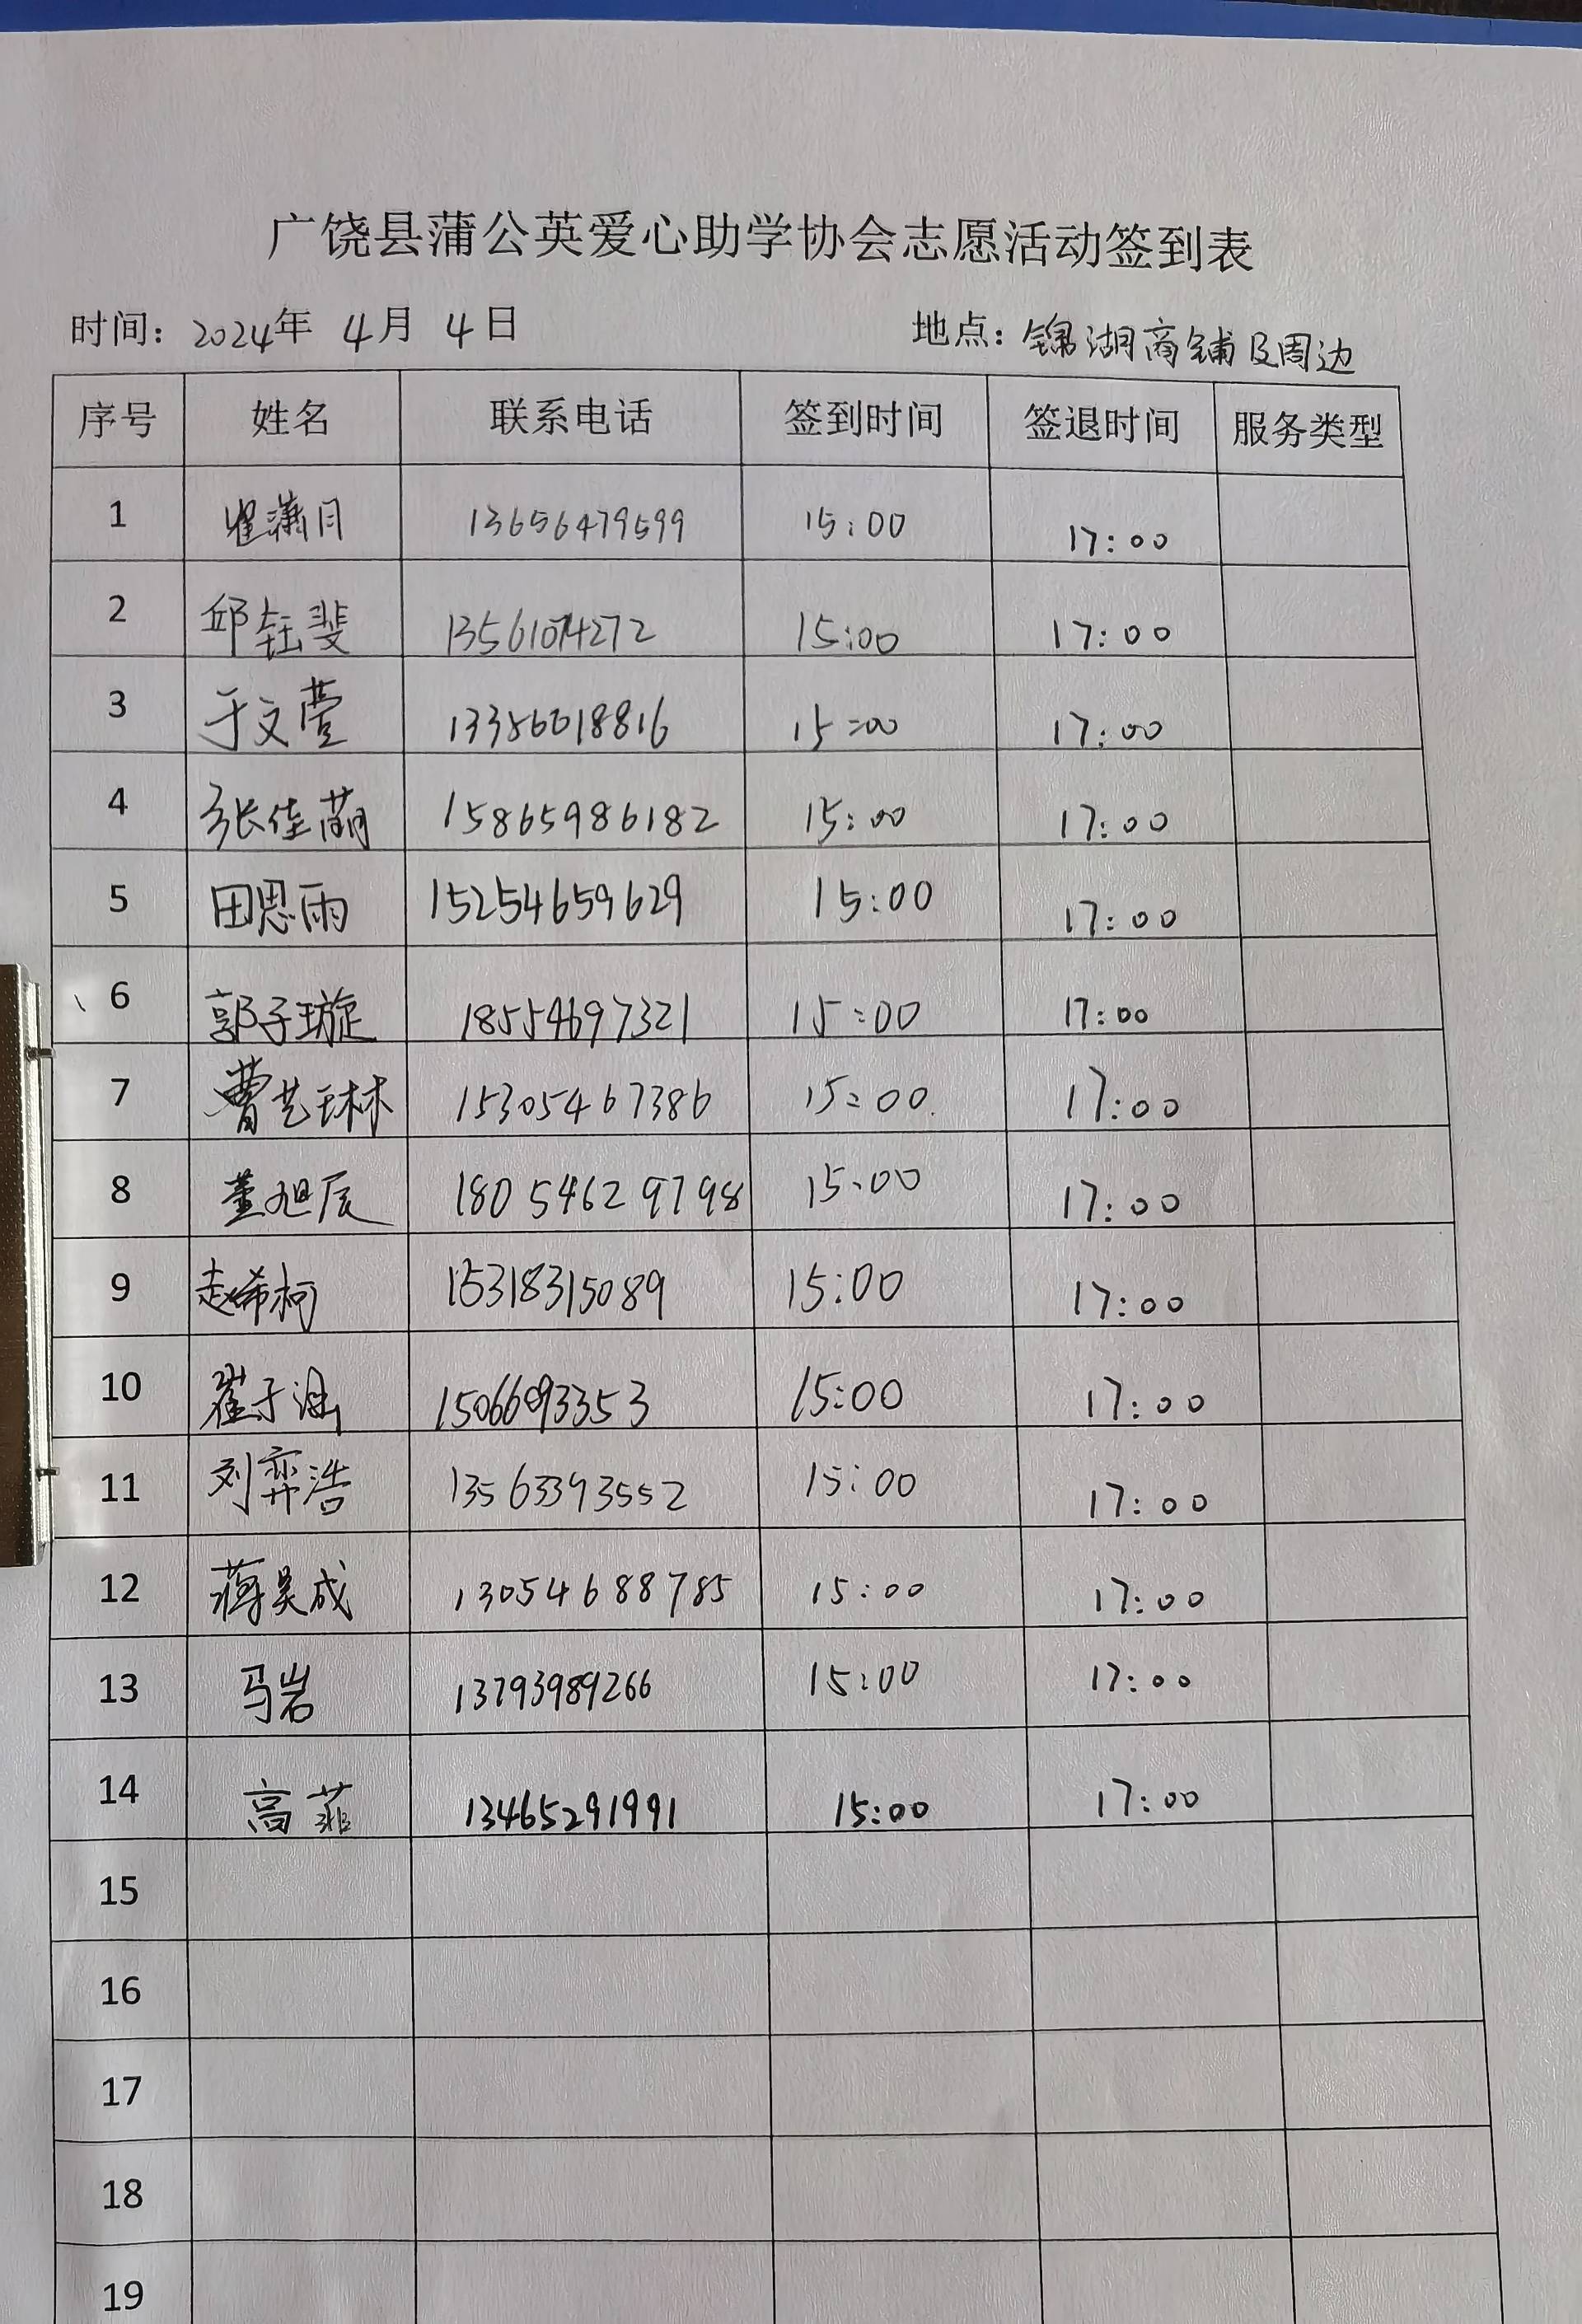 广饶县蒲公英爱心助学协会志愿活动签到表
时间：2024年 4月 4日 地点：锦湖商铺及周边
序号 姓名 联系电话 签到时间 签退时间 服务类型
1 13656479599 15:00 17:00
2 邱钰斐 13561074272 15:00 17:00
3 于文萱 13356618816 15:00 17:00
4 张佳萌 15865986182 15:00 17:00
5 田思雨 15254659629 15:00 17:00
6 郭子璇 18554697321 15:00 17:00
7 曹艺琳 15305467386 15:00 17:00
8 董旭辰 18054629798 15:00 17:00
9 赵希柯 15318315089 15:00 17:00
10 崔子涵 15066093353 15:00 17:00
11 刘弈浩 13563393552 15:00 17:00
12 蒋昊成 13054688785 15:00 17:00
13 马岩 13793989266 15:00 17:00
14 高菲 13465291991 15:00 17:00
15
16
17
18
19